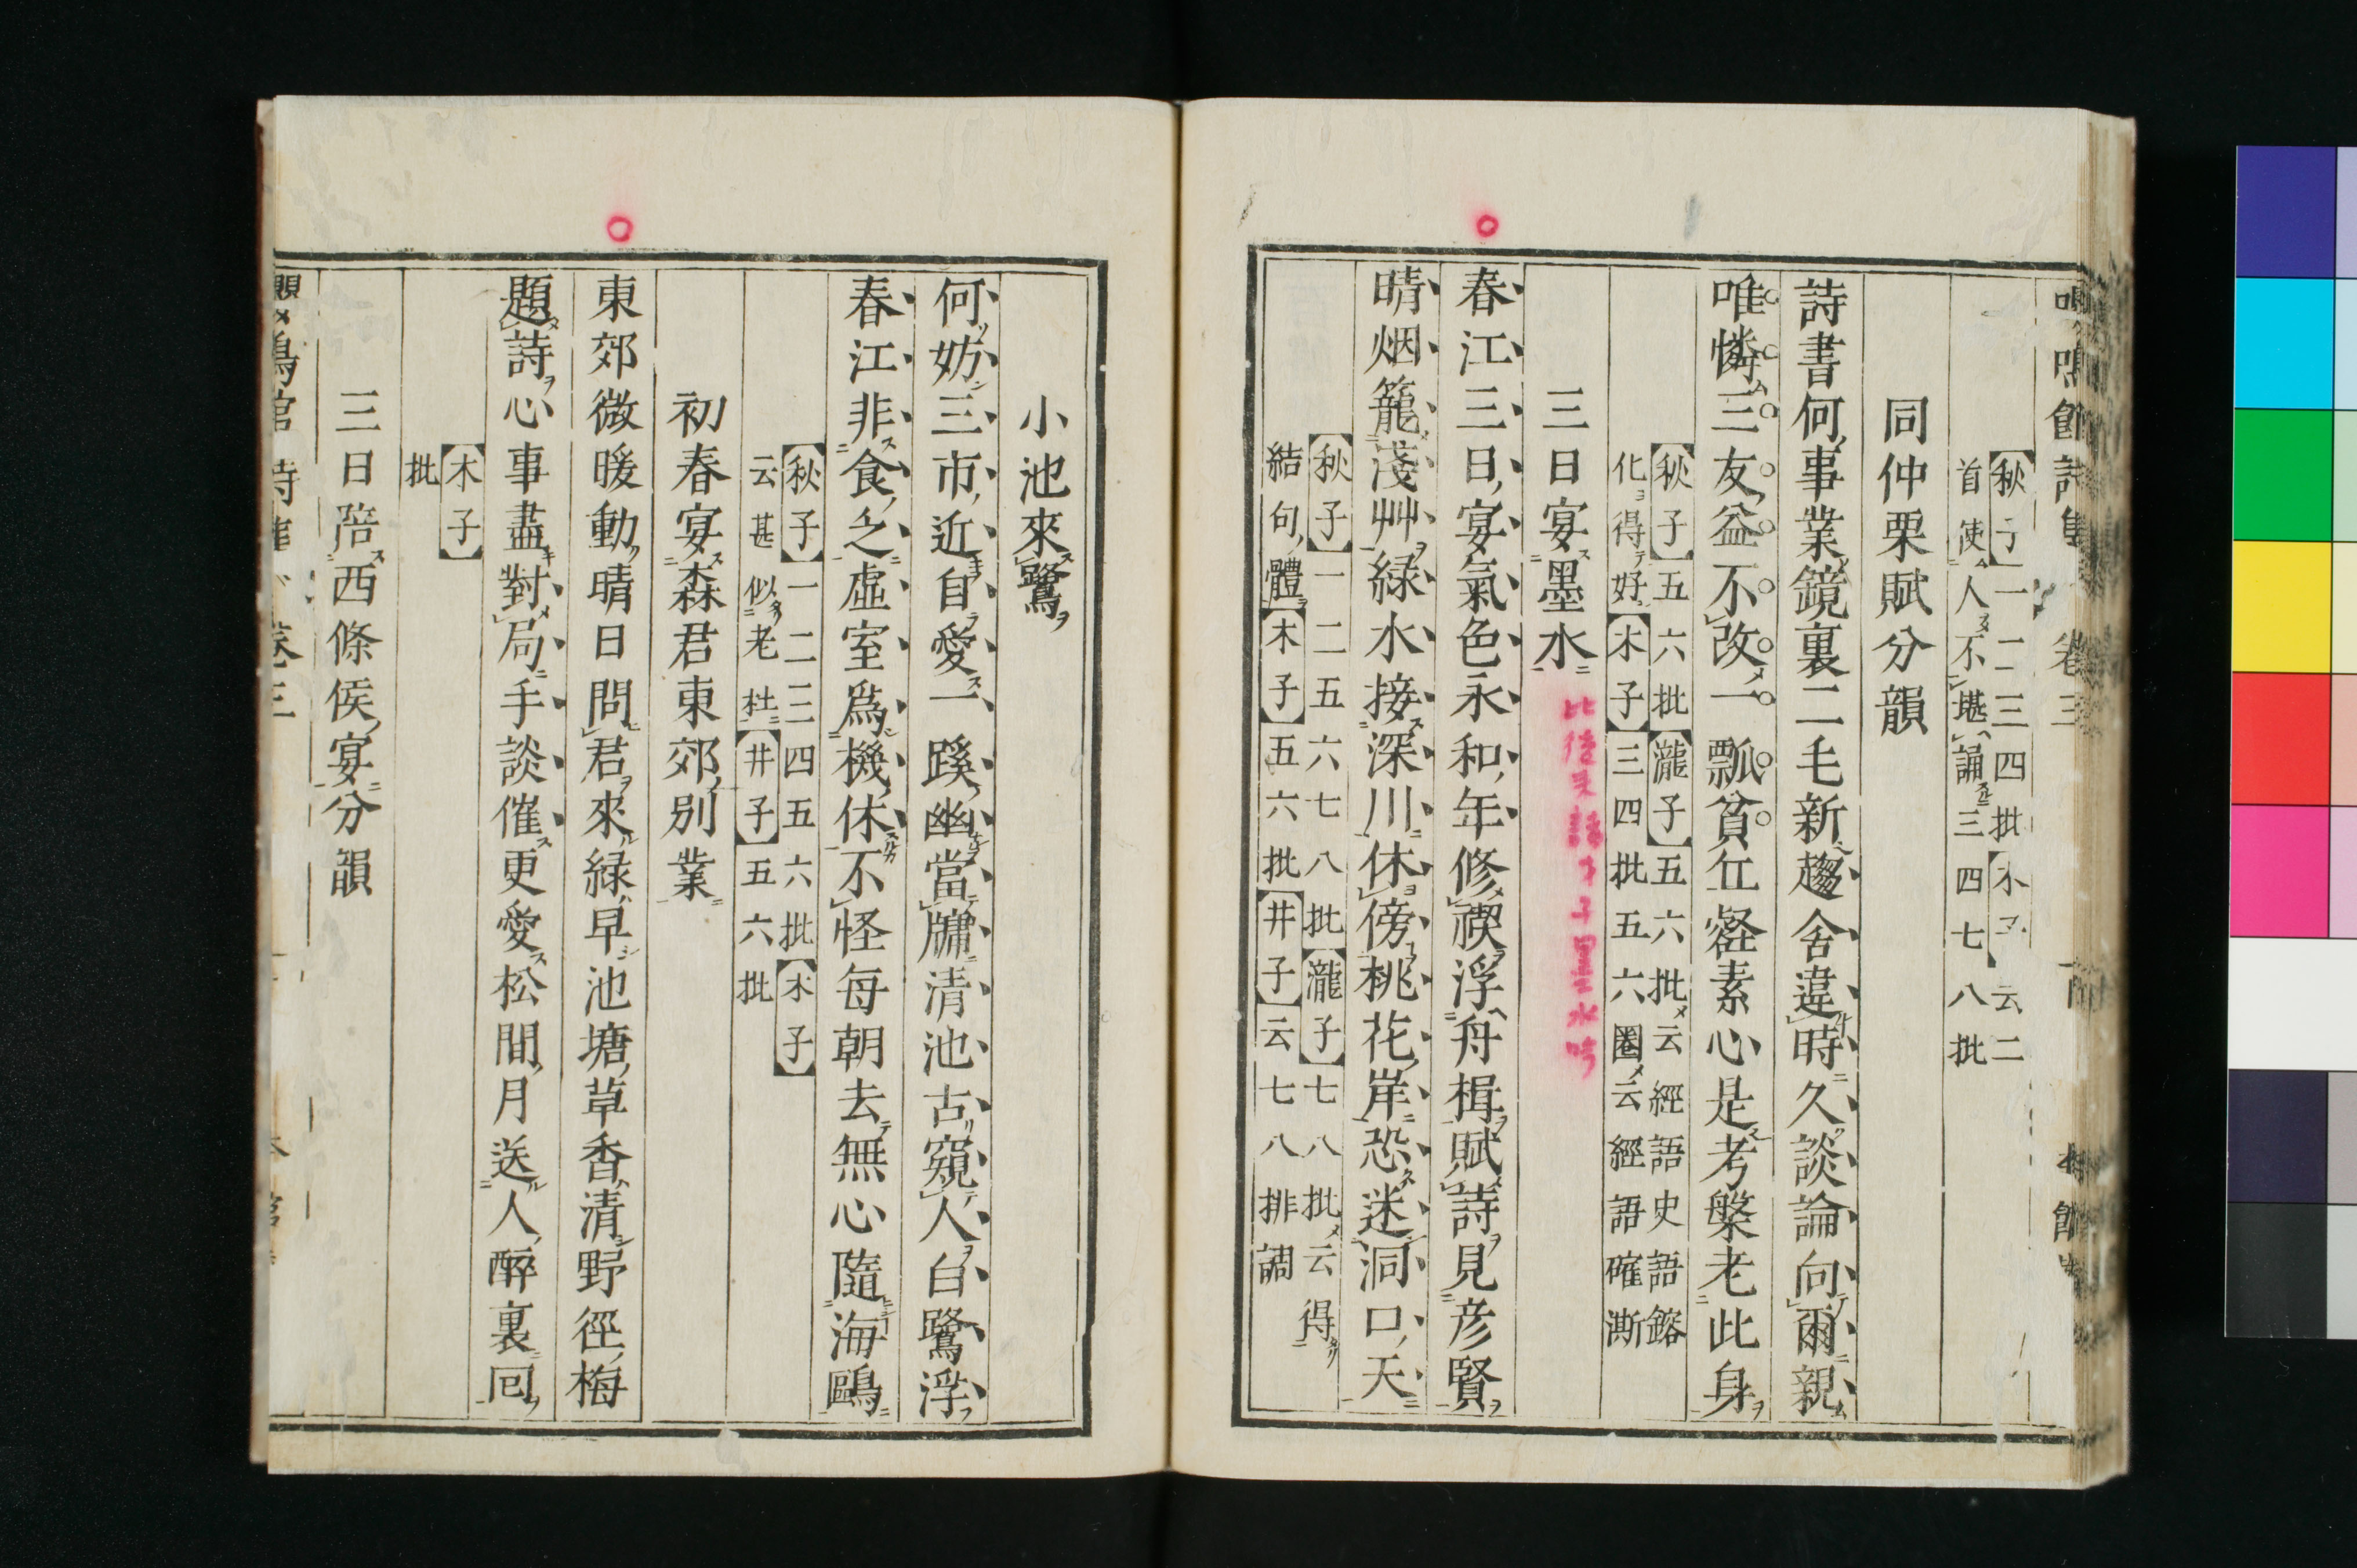 嚶鳴館詩集 卷三
【秋子】一二三四批【木子】云二
首使人不堪誦三四七八批
同仲栗賦分韻
詩書何事業鏡裏二毛新趨舍違時久談論向爾親
唯憐三友益不改一瓢貧丘壑素心是考槃老此身
【秋子】五六批【瀧子】五六批云經語史語鎔
化得好【木子】三四批五六圈云經語確澌
三日宴墨水
春江三日宴氣色永和年修禊浮舟楫賦詩見彥賢
晴烟籠淺艸綠水接深川休傍桃花岸恐迷洞口天
【秋子】一二五六七八批【瀧子】七八批云得
結句體【木子】五六批【井子】云七八排調
小池來鷺
何妨三市近自愛一蹊幽當牖清池古窺人白鷺浮
春江非食乏虛室爲機休不怪每朝去無心隨海鷗
【秋子】一二三四五六批【木子】
云甚似老杜【井子】五六批
初春宴森君東郊別業
東郊微暖動晴日問君來綠早池塘草香清野徑梅
題詩心事盡對局手談催更愛松間月送人醉裏回
【木子】
批
三日陪西條侯宴分韻
鳴館詩集 卷三